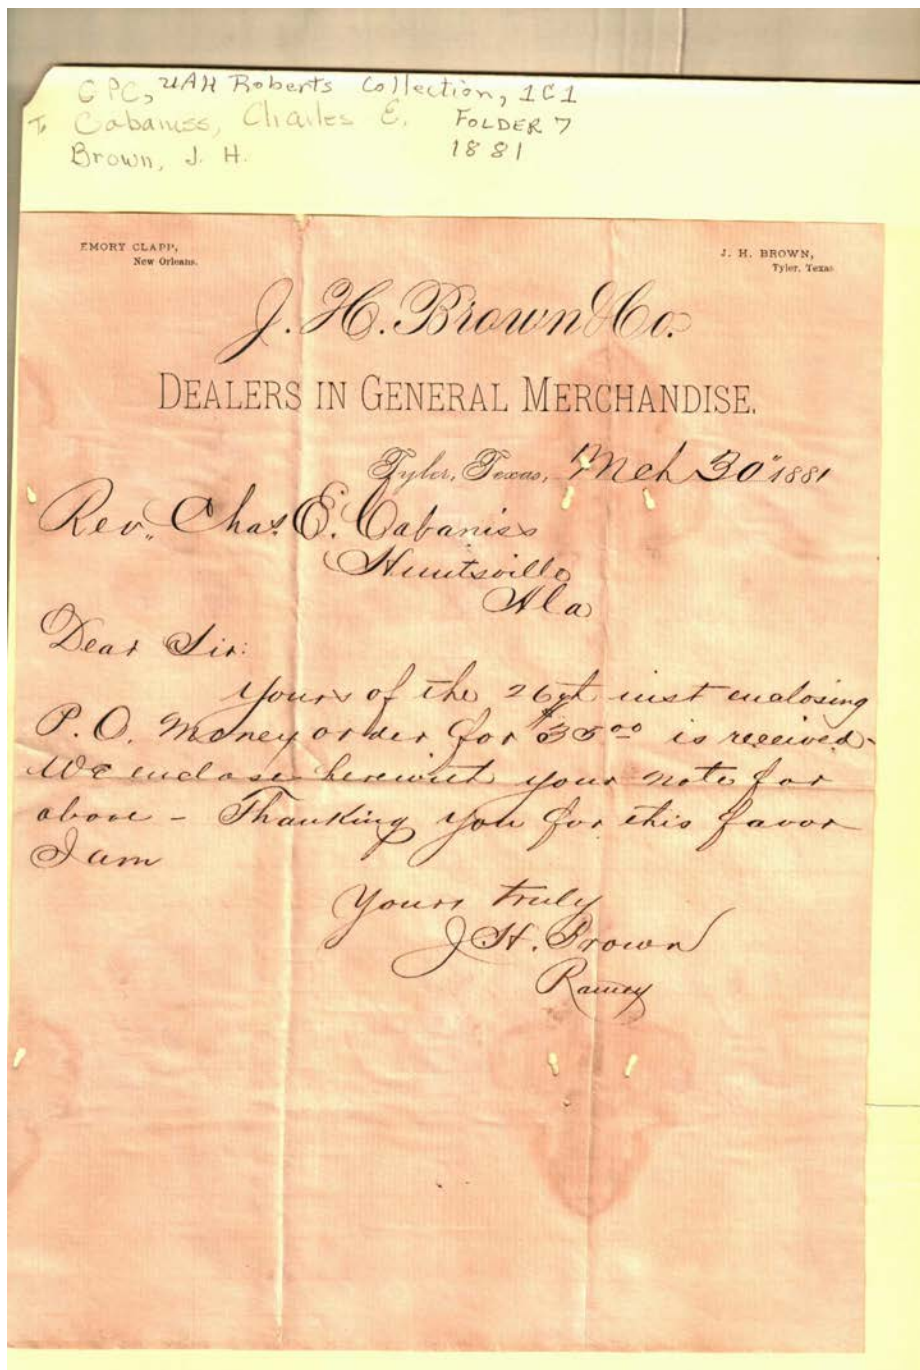 CPC, UAH Roberts Collection, 1C1
To Cabaniss, Charles E. FOLDER 7
Brown, J. H. 1881
EMORY CLAPP,
New Orleans.
J. H. BROWN,
Tyler, Texas
J. H. Brown & Co.
DEALERS IN GENERAL MERCHANDISE.
Tyler, Texas, Mch 30" 1881
Rev. Chas. E. Cabaniss
Huntsville
Ala
Dear Sir:
Yours of the 26th inst enclosing
P. O. Money order for $35.00 is received-
We enclose herewith your note for
above - Thanking you for this favor
I am
Yours truly
J H. Brown
Ramey